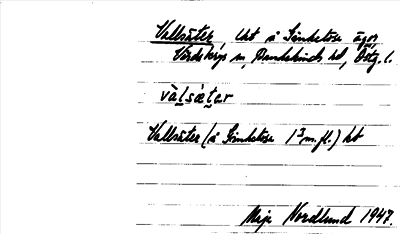 Vallsäter, lht å Simketorp ägor,
Vårdsbergs sn, Bankekinds hd, Östg. l.
vàlsätər
Vallsäter (å Simketorp 1³ m.fl.) ht
Maja Nordlund 1947.